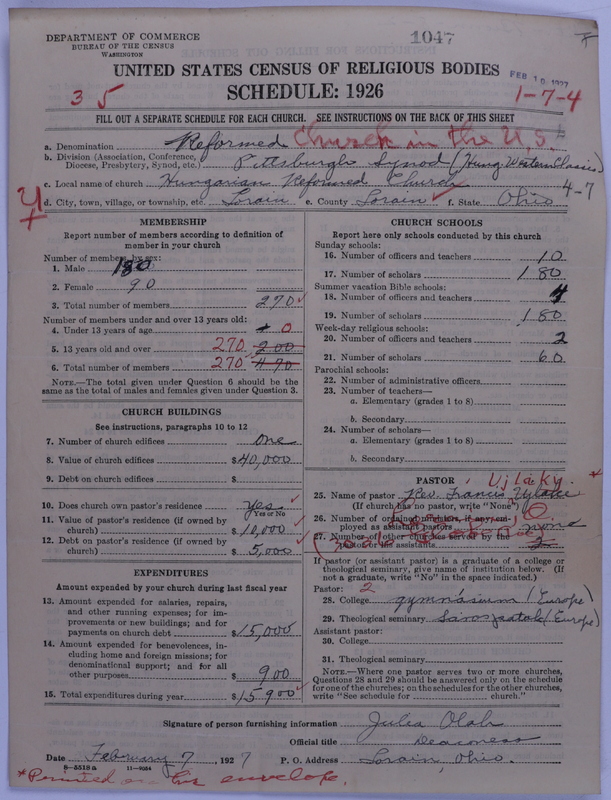 DEPARTMENT OF COMMERCE
BUREAU OF THE CENSUS
WASHINGTON
1047
UNITED STATES CENSUS OF RELIGIOUS BODIES
SCHEDULE: 1926
FEB 10 1927
35
1-7-4
FILL OUT A SEPARATE SCHEDULE FOR EACH CHURCH. SEE INSTRUCTIONS ON THE BACK OF THIS SHEET
a. Denomination Reformed Church in the U.S.
b. Division (Association, Conference, Diocese, Presbytery, Synod, etc.) Pittsburgh Synod (Hung. Western Classis)
c. Local name of church Hungarian Reformed Church 4-7
d. City, town, village, or township, etc. Lorain e. County Lorain f. State Ohio
MEMBERSHIP
Report number of members according to definition of member in your church
Number of members by sex:
1. Male 180
2. Female 90
3. Total number of members 270
Number of members under and over 13 years old:
4. Under 13 years of age 0
5. 13 years old and over 270 200
6. Total number of members 270 470
NOTE.—The total given under Question 6 should be the same as the total of males and females given under Question 3.
CHURCH BUILDINGS
See instructions, paragraphs 10 to 12
7. Number of church edifices one
8. Value of church edifices $40,000
9. Debt on church edifices $
10. Does church own pastor's residence Yes
Yes or No
11. Value of pastor's residence (if owned by church) $10,000
12. Debt on pastor's residence (if owned by church) $5,000
EXPENDITURES
Amount expended by your church during last fiscal year
13. Amount expended for salaries, repairs, and other running expenses; for improvements or new buildings; and for payments on church debt $15,000
14. Amount expended for benevolences, including home and foreign missions; for denominational support; and for all other purposes $900
15. Total expenditures during year $15900
CHURCH SCHOOLS
Report here only schools conducted by this church
Sunday schools:
16. Number of officers and teachers 10
17. Number of scholars 180
Summer vacation Bible schools:
18. Number of officers and teachers 4
19. Number of scholars 180
Week-day religious schools:
20. Number of officers and teachers 2
21. Number of scholars 60
Parochial schools:
22. Number of administrative officers
23. Number of teachers—
a. Elementary (grades 1 to 8)
b. Secondary
24. Number of scholars—
a. Elementary (grades 1 to 8)
b. Secondary
PASTOR Ujlaky *
25. Name of pastor Rev. Francis Ujlakie
(If church has no pastor, write "None")
26. Number of ordained ministers, if any, employed as assistant pastors none
27. Number of other churches served by the pastor or his assistants 2
If pastor (or assistant pastor) is a graduate of a college or theological seminary, give name of institution below. (If not a graduate, write "No" in the space indicated.)
Pastor: 2
28. College gymnásium (Europe)
29. Theological seminary Sarospatak (Europe)
Assistant pastor:
30. College
31. Theological seminary
NOTE.—Where one pastor serves two or more churches, Questions 28 and 29 should be answered only on the schedule for one of the churches; on the schedules for the other churches, write "See schedule for church."
Signature of person furnishing information Julia Olah
Official title Deaconess
Date February 7, 1927 P. O. Address Lorain, Ohio.
8-5518a 11-9054
*Printed on the envelope.